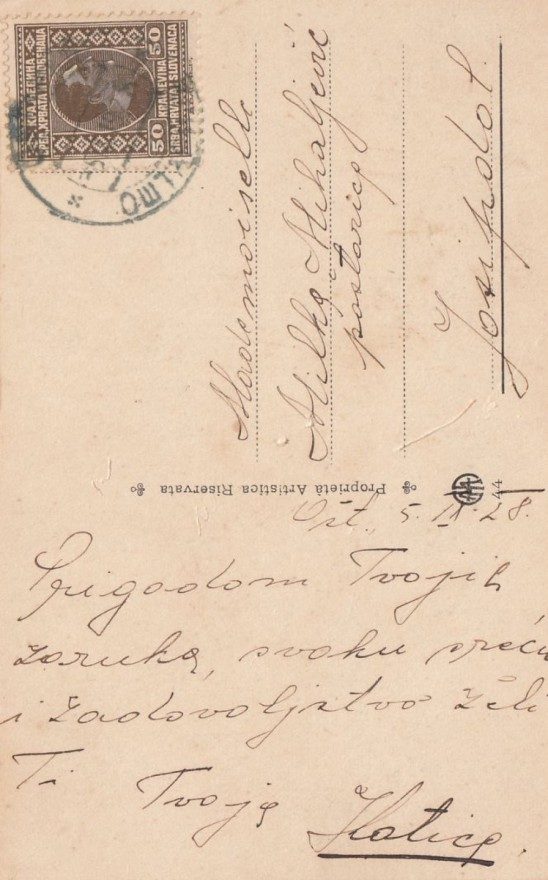 50 50
KRALJEVINA
SRBA, HRVATA I SLOVENACA
Mademoiselle
Milka Mihaljević
poštarica
Josipdol.
Proprietá Artistica Riservata
44
Ošt., 5. IX. 28.
Prigodom Tvojih
zaruka, svaku sreću
i zadovoljstvo želi
Ti Tvoja
Katica.